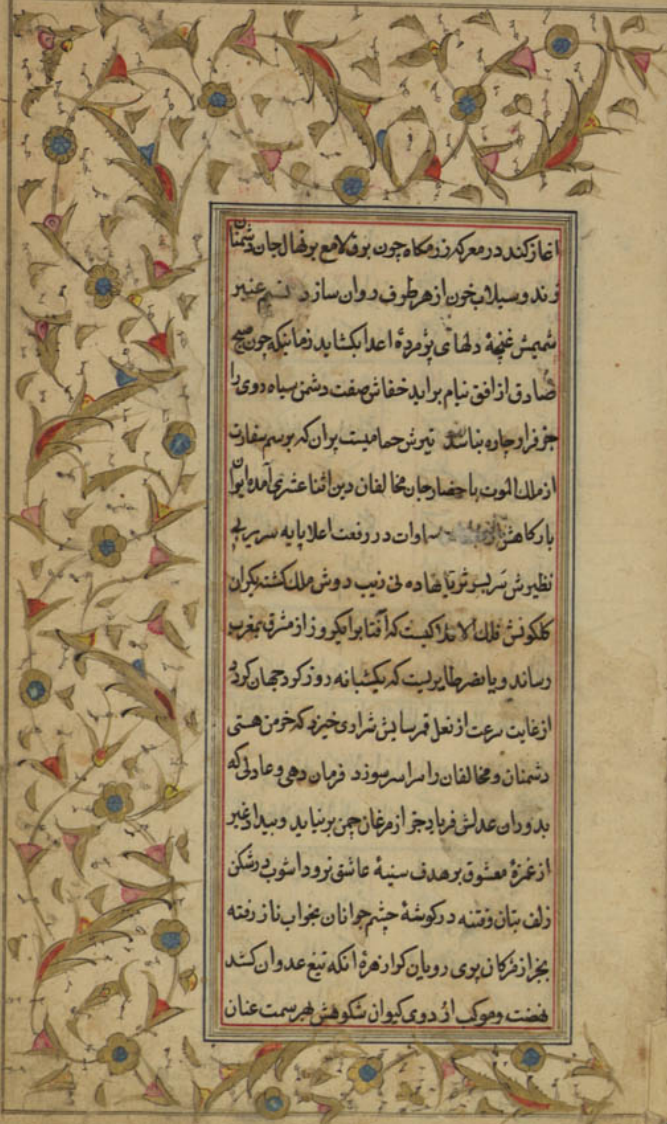 اغاز کند در معرکه رزمکاه چون برق لامع بر نهال جان دشمنان
زند و سیلاب خون از هر طرف روان سازد نسیم عنبر
شمیمش غنچهٔ دلهای پژمردهٔ اعدا بکشاید زمانیکه چون صبح
صادق از افق نیام براید خفاش صفت دشمن سیاه روی را
جز فرار چاره نباشد تیرش حمامیست بران که برسم سفارت
از ملک الموت باحضار جان مخالفان دین اثنا عشری آمده ایوان
بارکاهش سماوات در رفعت اعلا پایه سریر بی
نظیرش بر سر ثریا نهاده لی زیب دوش ملک کشته یکران
کلکونش فلک الافلاکیست که آفتابرا بیکروز از مشرق بمغرب
رساند و یا نسر طایریست که بیکشبانه روز کرد جهان کردد
از غایت سرعت از نعل قمرسایش شراری خیزد که خرمن هستی
دشمنان و مخالفان را سراسر سوزد فرمان دهی و عادلی که
بدوران عدلش فریاد جز از مرغان چمن برنیاید و بیداد غیر
از غمزهٔ معشوق بر هدف سینهٔ عاشق نرود اشوب در شکن
زلف بتان و فتنه در کوشهٔ چشم جوانان بخواب ناز رفته
بجز از مژکان پری رویان کرا زهرهٔ انکه تیغ عدوان کشد
نهضت و موکب اردوی کیوان شکوهش بهر سمت عنان